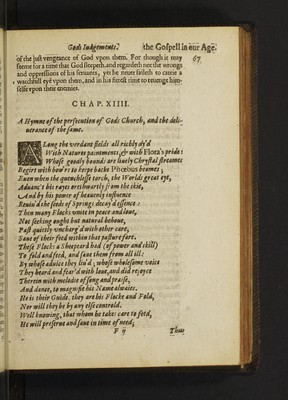 Gods Iudgements. the Gospell in our Age. 67
of the iust vengeance of God vpon them. For though it may
seeme for a time that God sleepeth, and regardeth not the wrongs
and oppressions of his seruants, yet he neuer faileth to carie a
watchfull eye vpon them, and in his fittest time to reuenge him-
selfe vpon their enemies.
CHAP. XIIII.
A Hymne of the persecution of Gods Church, and the deli-
uerance of the same.
ALang the verdant fields all richly dy'd
With Natures paintments, & with Flora's pride:
Whose goodly bounds are liuely Chrystall streames
Begirt with bow'rs to keepe backe Phœbus beames;
Euen when the quenchlesse torch, the Worlds great eye,
Aduanc't his rayes orethwartly from the skie,
And by his power of heauenly influence
Reuiu'd the seeds of Springs decay'd essence:
Then many Flocks vnite in peace and loue,
Not seeking ought but naturall behoue,
Past quietly vncharg'd with other care,
Saue of their feed within that pasture faire.
These Flocks a Sheepeard had (of power and skill)
To fold and feed, and saue them from all ill:
By whose aduice they liu'd; whose wholesome voice
They heard and fear'd with loue, and did reioyce
Therein with melodie of song and praise,
And dance, to magnifie his Name alwaies.
He is their Guide, they are his Flocke and Fold,
Nor will they be by any else controld.
Well knowing, that whom he takes care to feed,
He will preserue and saue in time of need;
F ij Thus